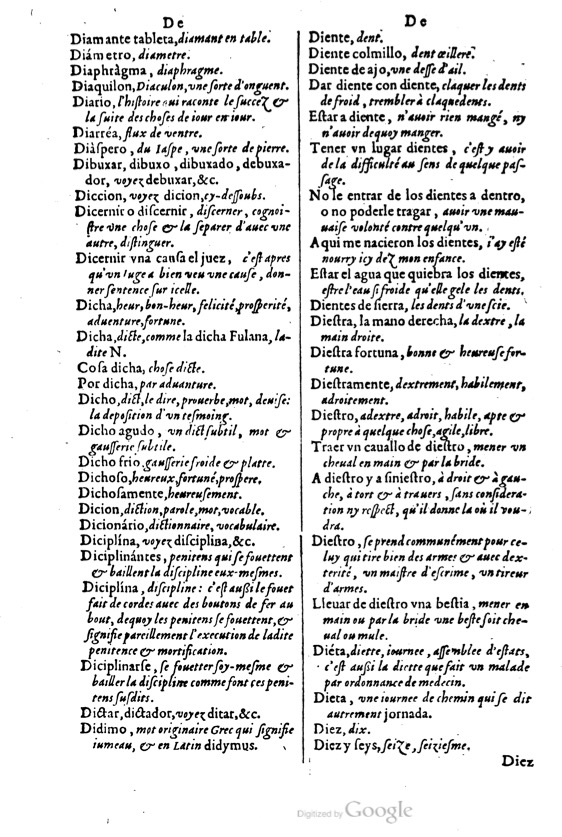 De
Diamante tableta, diamant en table.
Diámetro, diametre.
Diaphràgma, diaphragme.
Diaquilon, Diaculon, vne sorte d'onguent.
Diario, l'histoire qui raconte le succez &
la suite des choses de iour en iour.
Diarréa, flux de ventre.
Diàspero, du iaspe, vne sorte de pierre.
Dibuxar, dibuxo, dibuxado, debuxa-
dor, voyez debuxar, &c.
Diccion, voyez dicion, cy-dessoubs.
Dicernir o discernir, discerner, cognoi-
stre vne chose & la separer d'auec vne
autre, distinguer.
Dicernir vna causa el juez, c'est apres
qu'vn Iuge a bien veu vne cause, don-
ner sentence sur icelle.
Dicha, heur, bon-heur, felicité, prosperité,
aduenture, fortune.
Dicha, dicte, comme la dicha Fulana, la-
dite N.
Cosa dicha, chose dicte.
Por dicha, par aduanture.
Dicho, dict, le dire, prouerbe, mot, deuise:
la deposition d'vn tesmoing.
Dicho agudo, vn dict subtil, mot &
gausserie subtile.
Dicho frio, gausserie froide & platte.
Dichoso, heureux, fortuné, prospere.
Dichosamente, heureusement.
Dicion, diction, parole, mot, vocable.
Dicionário, dictionnaire, vocabulaire.
Diciplína, voyez disciplina, &c.
Diciplinántes, penitens qui se fouettent
& baillent la discipline eux-mesmes.
Diciplína, discipline: c'est aussi le fouet
fait de cordes auec des boutons de fer au
bout, dequoy les penitens se fouettent, &
signifie pareillement l'execution de ladite
penitence & mortification.
Diciplinarse, se fouetter soy-mesme &
bailler la discipline comme font ces peni-
tens susdits.
Dictar, dictador, voyez ditar, &c.
Didimo, mot originaire Grec qui signifie
iumeau, & en Latin didymus.
De
Diente, dent.
Diente colmillo, dent œillere.
Diente de ajo, vne desse d'ail.
Dar diente con diente, claquer les dents
de froid, trembler à claquedents.
Estar a diente, n'auoir rien mangé, ny
n'auoir dequoy manger.
Tener vn lugar dientes, c'est y auoir
de la difficulté au sens de quelque pas-
sage.
No le entrar de los dientes a dentro,
o no poderle tragar, auoir vne mau-
uaise volonté contre quelqu'vn.
Aqui me nacieron los dientes, i'ay esté
nourry icy dez mon enfance.
Estar el agua que quiebra los dientes,
estre l'eau si froide qu'elle gele les dents.
Dientes de sierra, les dents d'vne scie.
Diestra, la mano derecha, la dextre, la
main droite.
Diestra fortuna, bonne & heureuse for-
tune.
Diestramente, dextrement, habilement,
adroitement.
Diestro, adextre, adroit, habile, apte &
propre à quelque chose, agile, libre.
Traer vn cauallo de diestro, mener vn
cheual en main & par la bride.
A diestro y a siniestro, à droit & à gau-
che, à tort & à trauers, sans considera-
tion ny respect, qu'il donne la où il vou-
dra.
Diestro, se prend communément pour ce-
luy qui tire bien des armes & auec dex-
terité, vn maistre d'escrime, vn tireur
d'armes.
Lleuar de diestro vna bestia, mener en
main ou par la bride vne beste soit che-
ual ou mule.
Diéta, diette, iournee, assemblee d'estats,
c'est aussi la diette que fait vn malade
par ordonnance de medecin.
Dieta, vne iournee de chemin qui se dit
autrement jornada.
Diez, dix.
Diez y seys, seize, seiziesme.
Diez
Digitized by Google